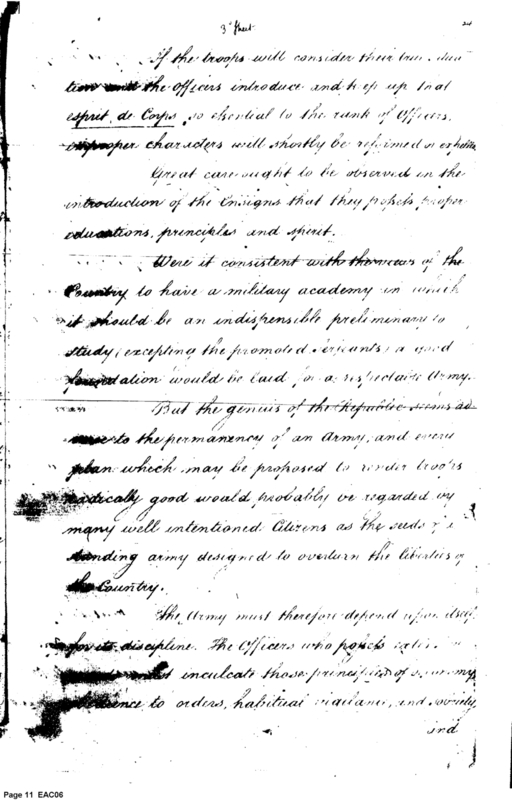 3d Sheet
If the troops will consider their true
tion and the officers introduce and keep up that
esprit de Corps, so essential to the rank of Officers,
improper characters will shortly be reformed or
Great care ought to be observed in the
introduction of the Ensigns that they possess proper
educations, principles and spirit.
Were it consistent with the views of the
Country to have a military academy in which
it should be an indispensible preliminary to
study, (excepting the promoted Serjeants) a good
foundation would be laid for a respectable Army.
But the genius of the Republic seems ad
verse to the permanency of an Army, and every
plan which may be proposed to render troops
radically good would probably be regarded by
many well intentioned Citizens as the seeds of a
standing army designed to overturn the liberties of
the Country.
The Army must therefore depend upon itself
for its discipline. The Officers who possess
must inculcate those principles of economy
obedience to orders, habitual vigilance, and sobriety
and
Page 11 EAC06